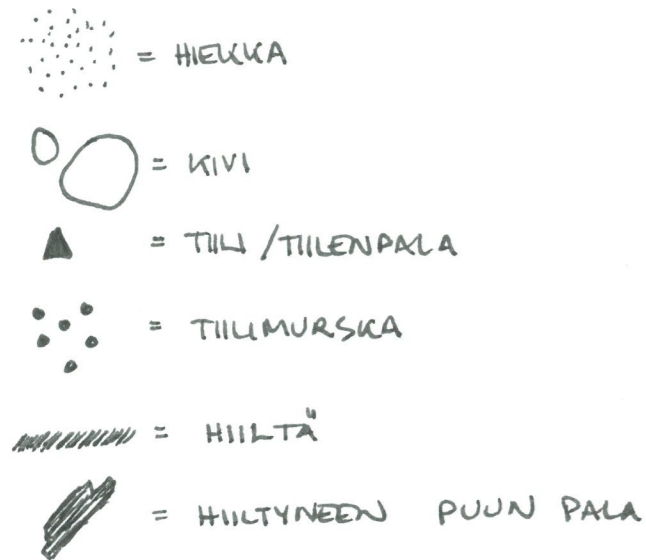 = HIEKKA
= KIVI
= TIILI / TIILENPALA
= TIILIMURSKA
= HIILTÄ
= HIILTYNEEN PUUN PALA